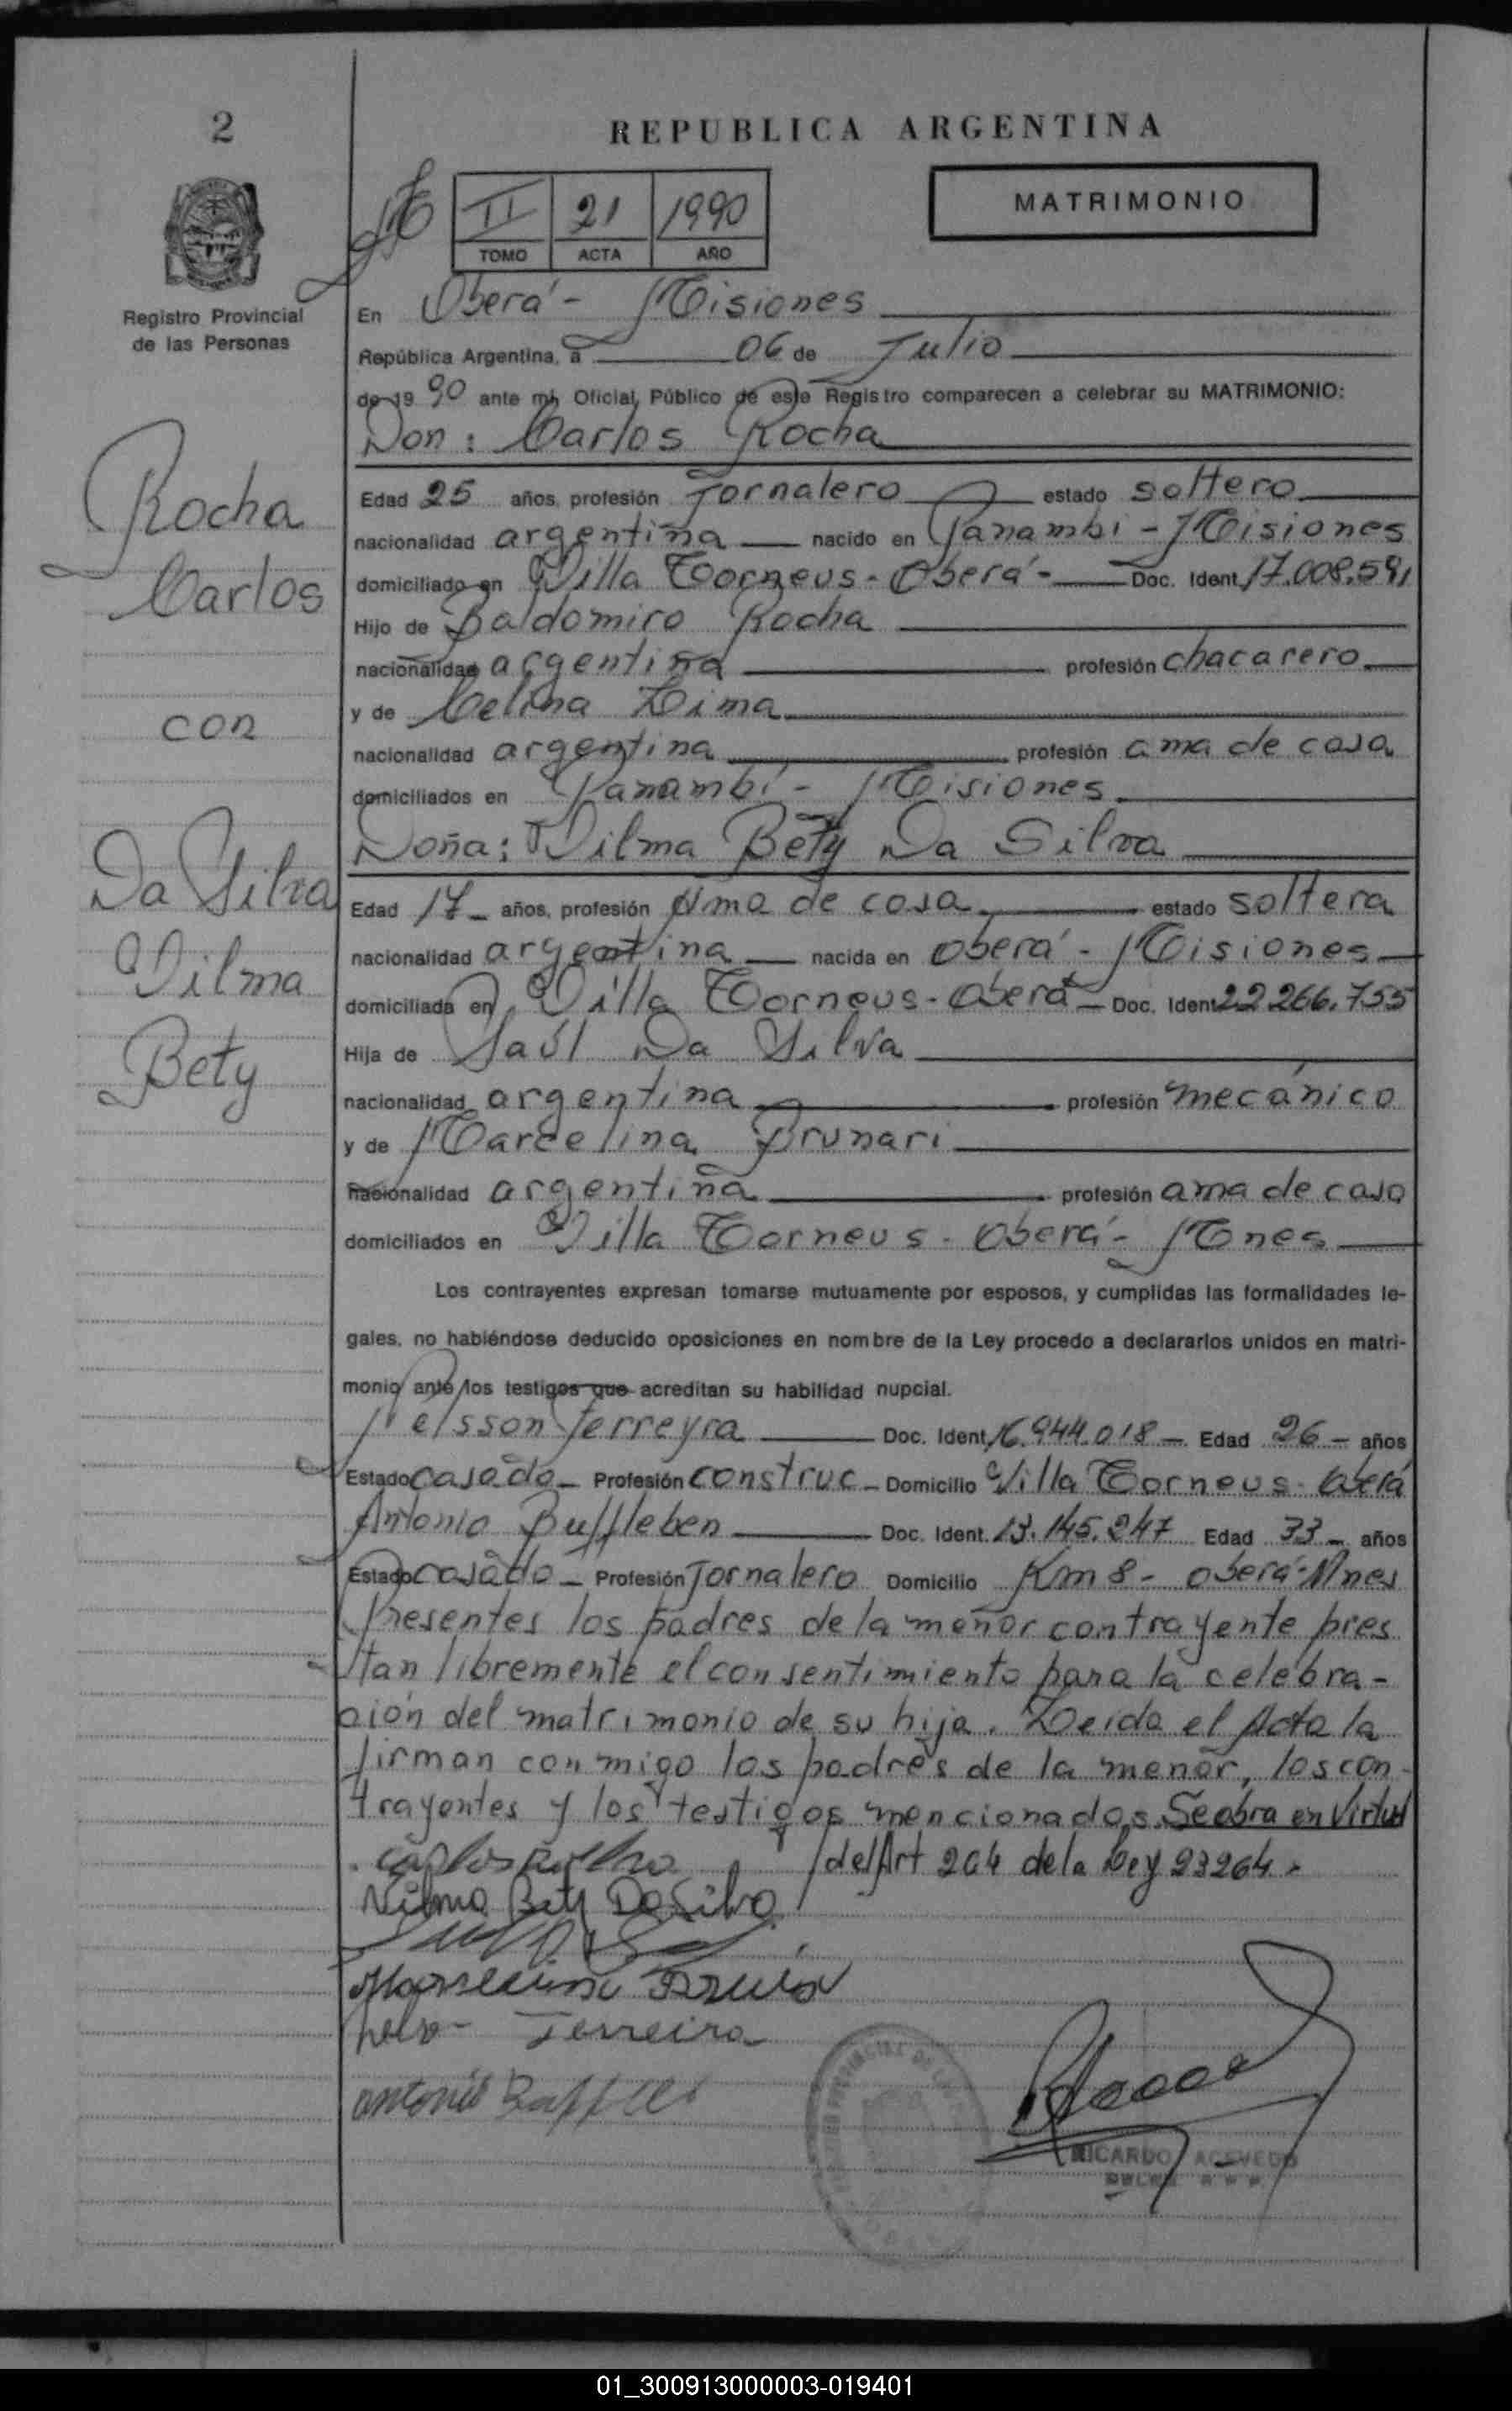 2
REPUBLICA ARGENTINA
II 21 1990
TOMO ACTA AÑO
MATRIMONIO
Registro Provincial
de las Personas
En Oberá - Misiones
República Argentina, a 06 de Julio
de 19 90 ante mí, Oficial Público de este Registro comparecen a celebrar su MATRIMONIO:
Don: Carlos Rocha
Edad 25 años, profesión Jornalero estado soltero
nacionalidad argentina nacido en Panambi - Misiones
domiciliado en Villa Torneus - Oberá - Doc. Ident. 17.008.591
Hijo de Baldomiro Rocha
nacionalidad argentina profesión chacarero
y de Celina Lima
nacionalidad argentina profesión ama de casa
domiciliados en Panambí - Misiones
Doña: Vilma Bety Da Silva
Edad 17 - años, profesión Ama de casa estado soltera
nacionalidad argentina nacida en Oberá - Misiones
domiciliada en Villa Torneus - Oberá - Doc. Ident. 22266.755
Hija de Saúl Da Silva
nacionalidad argentina profesión mecánico
y de Marcelina Brunari
nacionalidad argentina profesión ama de casa
domiciliados en Villa Torneus - Oberá - Mnes
Los contrayentes expresan tomarse mutuamente por esposos, y cumplidas las formalidades le-
gales, no habiéndose deducido oposiciones en nombre de la Ley procedo a declararlos unidos en matri-
monio ante los testigos que acreditan su habilidad nupcial.
Nelsson Ferreyra Doc. Ident. 16.944.018 - Edad 26 - años
Estado casado - Profesión construc - Domicilio Villa Torneus - Oberá
Antonio Buffleben Doc. Ident. 13.145.247 Edad 33 - años
Estado casado - Profesión Jornalero Domicilio Km 8 - Oberá - Mnes
Presentes los padres de la menor contrayente pres
tan libremente el consentimiento para la celebra-
ción del matrimonio de su hija. Leida el Acta la
firman conmigo los padres de la menor, los con-
trayentes y los testigos mencionados. Se obra en Virtud
del Art 204 de la Ley 23264.
Carlos Rocha
Vilma Bety Da Silva
Ferreira
Antonio
RICARDO ACEVEDO
Rocha
Carlos
con
Da Silva
Vilma
Bety
01_300913000003-019401